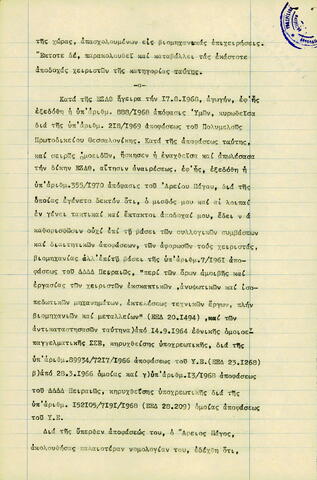 τῆς χώρας, ἀπασχολουμένων εἰς βιομηχανικάς ἐπιχειρήσεις.
Ἔκτοτε δέ, παρακολουθεῖ καί καταβάλλει τάς ἑκάστοτε
ἀποδοχάς χειριστῶν τῆς κατηγορίας ταύτης.
-ο-
Κατά τῆς ΕΣΔΘ ἤγειρα τήν 17.8.1968, ἀγωγήν, ἐφ'ἧς
ἐξεδόθη ἡ ὑπ'ἀριθμ. 888/1968 ἀπόφασις Ὑμῶν, κυρωθεῖσα
διά τῆς ὑπ'ἀριθμ. 218/1969 ἀποφάσεως τοῦ Πολυμελοῦς
Πρωτοδικείου Θεσσαλονίκης. Κατά τῆς ἀποφάσεως ταύτης,
καί σειρᾶς ὁμοειδῶν, ἤσκησεν ἡ ἐναχθεῖσα καί ἀπωλέσασα
τήν δίκην ΕΣΔΘ, αἴτησιν ἀναιρέσεως, ἐφ'ἧς, ἐξεδόθη ἡ
ὑπ'ἀριθμ.355/1970 ἀπόφασις τοῦ Ἀρείου Πάγου, διά τῆς
ὁποίας ἐγένετο δεκτόν ὅτι, ὁ μισθός μου καί αἱ λοιπαί
ἐν γένει τακτικαί καί ἔκτακτοι ἀποδοχαί μου, ἔδει νά
καθορισθῶσιν οὐχί ἐπί τῇ βάσει τῶν συλλογικῶν συμβάσεων
καί διαιτητικῶν ἀποφάσεων, τῶν ἀφορωσῶν τούς χειριστάς,
βιομηχανίας ἀλλ'ἐπίτῇ βάσει τῆς ὑπ'ἀριθμ.7/1961 ἀπο-
φάσεως τοῦ ΔΔΔΔ Πειραιῶς, "περί τῶν ὅρων ἀμοιβῆς καί
ἐργασίας τῶν χειριστῶν ἐκσκαπτικῶν ,ἀνυψωτικῶν καί ἰσο-
πεδωτικῶν μηχανημάτων, ἐκτελέσεως τεχνικῶν ἔργων, πλήν
βιομηχανιῶν καί μεταλλείων" (ΕΕΔ 20.1494) ,καί τῶν
ἀντικαταστησασῶν ταύτην α)ἀπό 14.9.1964 ἐθνικῆς ὁμοιοε-
παγγελματικῆς ΣΣΕ, κηρυχθείσης ὑποχρεωτικῆς, διά τῆς
ὑπ'ἀριθμ. 89934/7217/1966 ἀποφάσεως τοῦ Υ.Ε.(ΕΕΔ 23.1268)
β)ἀπό 28.3.1966 ὁμοίας καί γ)ὑπ'ἀριθμ.13/1968 ἀποφάσεως
τοῦ ΔΔΔΔ Πειραιῶς, κηρυχθείσης ὑποχρεωτικῆς, διά τῆς
ὑπ'ἀριθμ. 152105/7191/1968 (ΕΕΔ 28.209) ὁμοίας ἀποφάσεως
τοῦ Υ.Ε.
Διά τῆς ὑπερθεν ἀποφάσεώς του, ὁ Ἄρειος Πάγος,
ἀκολουθήσας παλαιοτέραν νομολογίαν του, ἐδέχθη ὅτι,